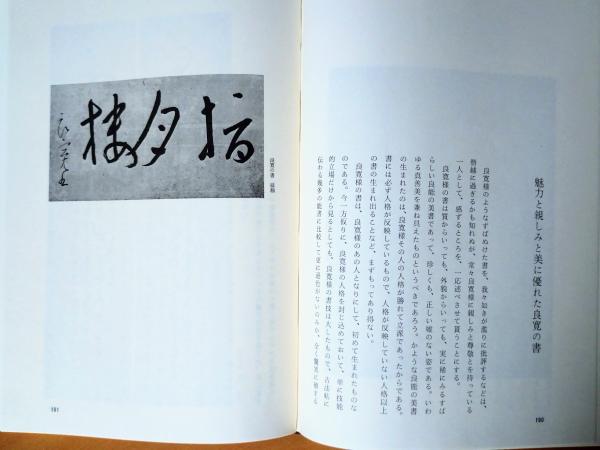 魅力と親しみと美に優れた良寛の書
良寛様のようなずばぬけた書を、我々如きが濫りに批評するなどは、
僭越に過ぎるかも知れぬが、常々良寛様に親しみと尊敬とを持っている
一人として、感ずるところを、一応述べさせて貰うことにする。
良寛様の書は質からいっても、外貌からいっても、実に稀にみるすば
らしい良能の美書であって、珍しくも、正しい嘘のない姿である。いわ
ゆる真善美を兼ね具えたものというべきであろう。かような良能の美書
の生まれたのは、良寛様その人の人格が勝れて立派であったからである。
書には必ず人格が反映しているもので、人格が反映していない人格以上
の書の生まれ出ることなど、まずもってあり得ない。
良寛様の書は、良寛様のあの人となりにして、初めて生まれたものな
のである。今一方仮りに、良寛様の人格を封じ込めておいて、単に技能
的立場だけから見るとしても、良寛様の書技は大したもので、古法帖に
伝わる幾多の能書に比較して更に遜色がないのみか、全く驚異に値する
190
指月楼
良寛書
良寛の書
191